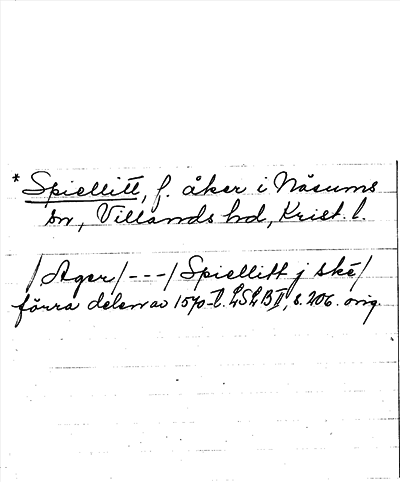 * Spiellitt, f. åker i Näsums
sn, Villands hd, Krist. l.
/Ager/ --- / Spiellitt j ske/
förra delen av 1570-t. LSLB II, s. 206. orig.